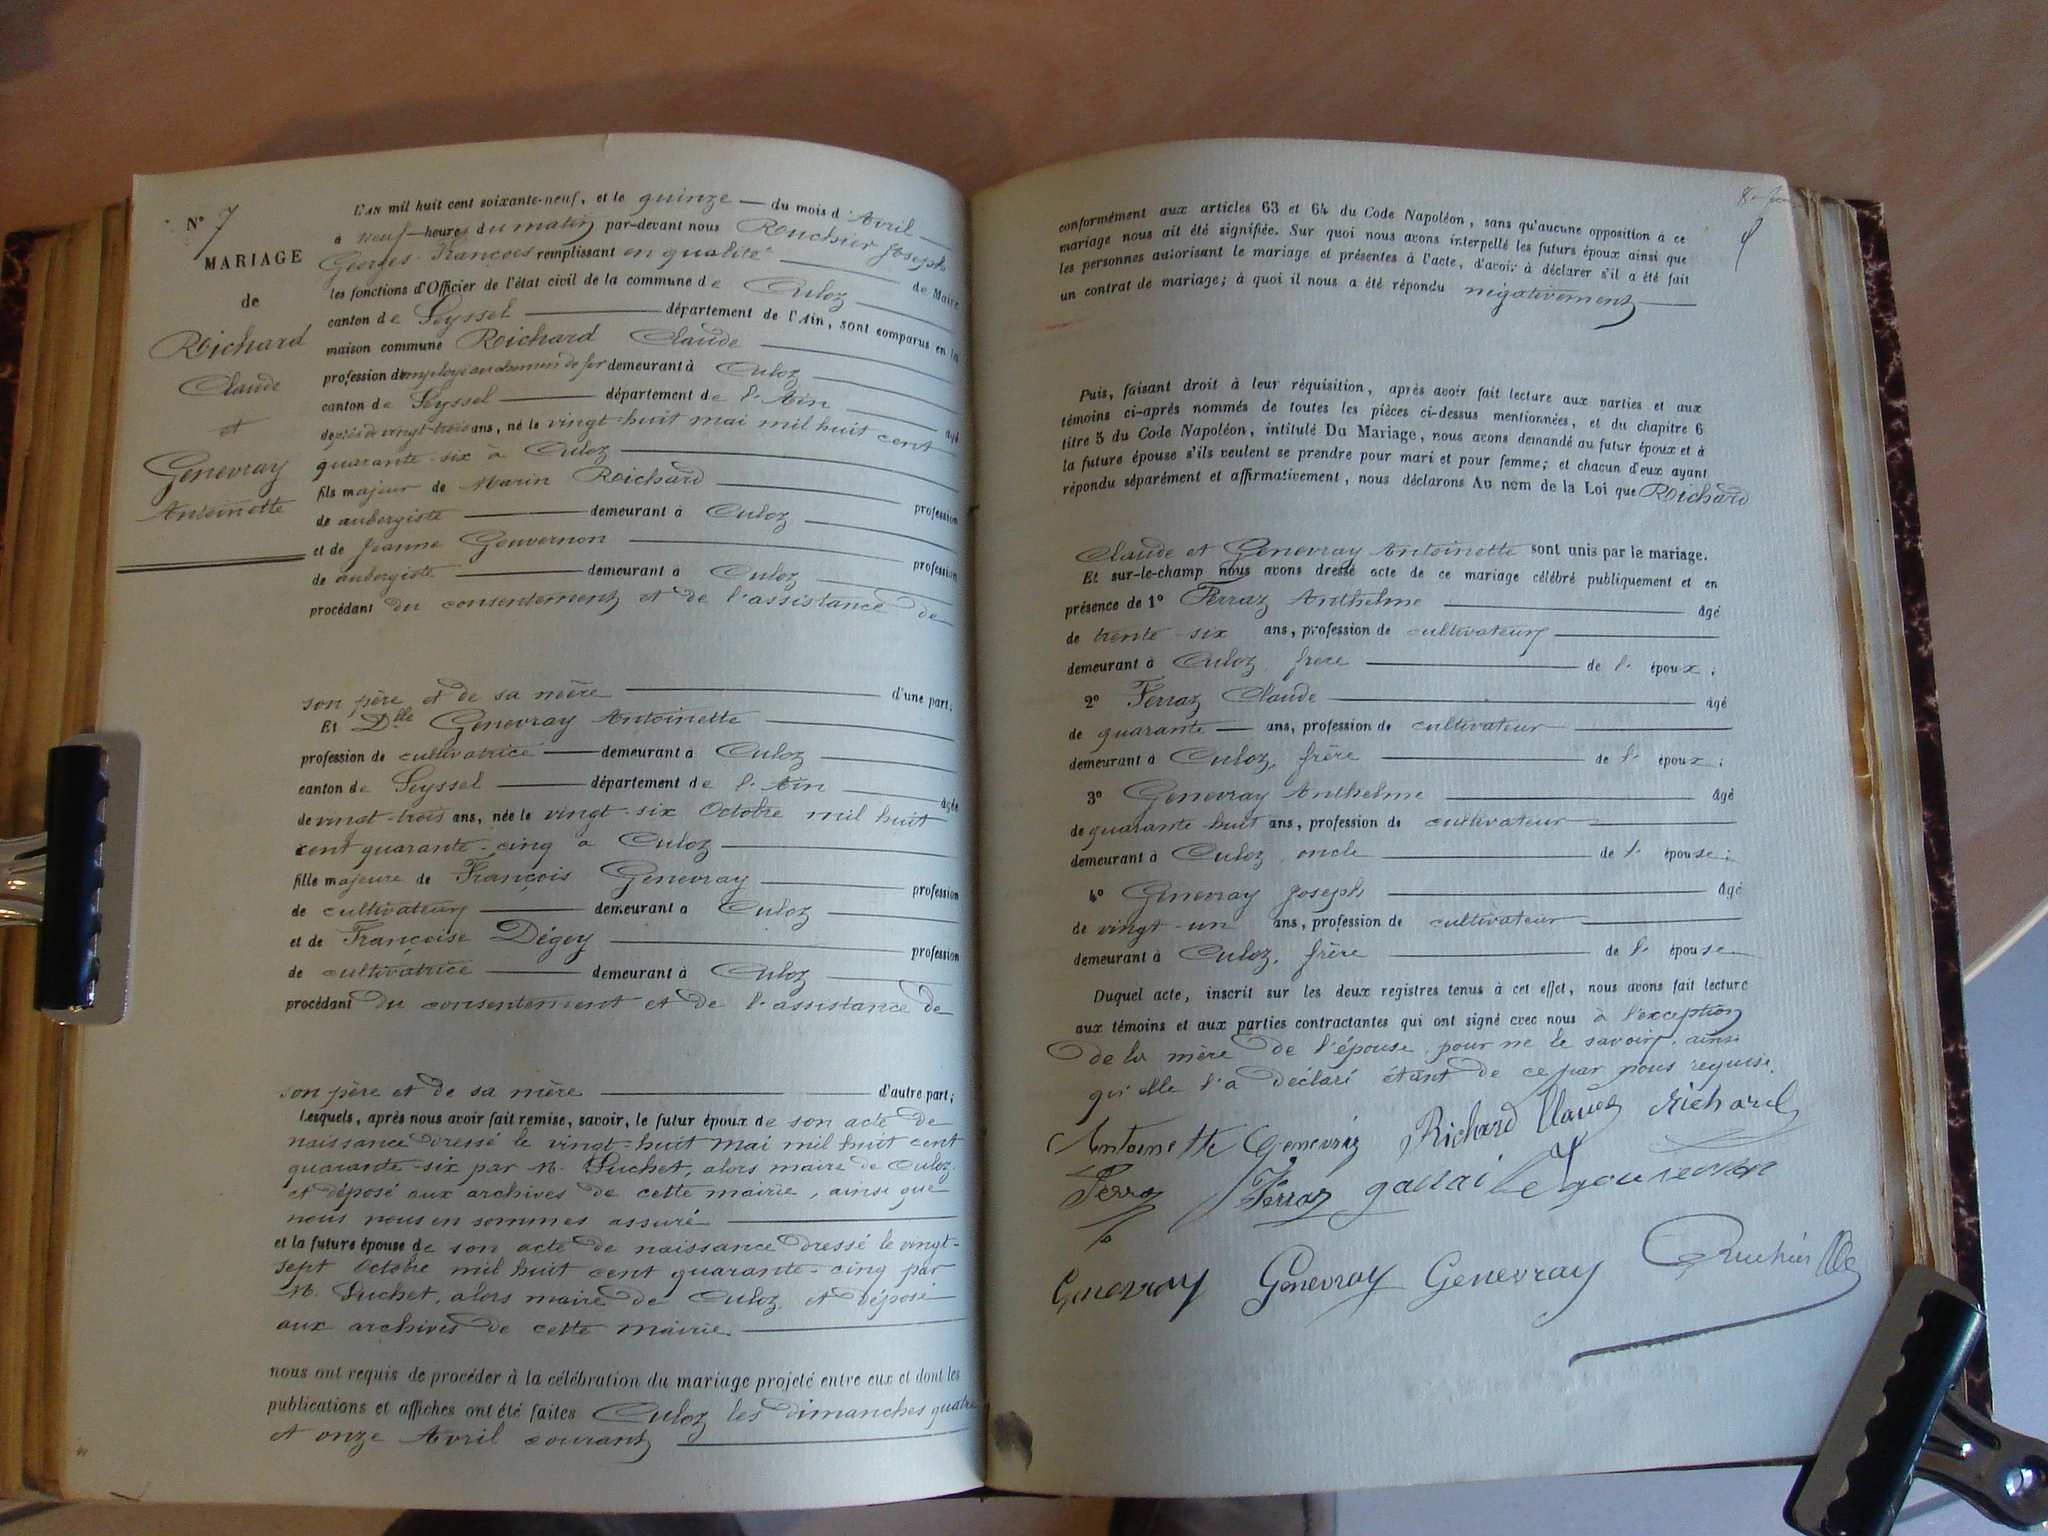 N° 7
MARIAGE
de
Richard
Claude
et
Genevray
Antoinette
L'AN mil huit cent soixante-neuf, et le quinze du mois d'Avril
a neuf heures du matin par-devant nous Rouchier Joseph
Georges-François remplissant en qualité de Maire
les fonctions d'Officier de l'état civil de la commune de Culoz
canton de Seyssel département de l'Ain, sont comparus en la
maison commune Richard Claude
profession d'employé au chemin de fer demeurant à Culoz
canton de Seyssel département de l'Ain âgé
de près de vingt-trois ans, né le vingt-huit mai mil huit cent
quarante-six à Culoz
fils majeur de Marin Richard profession
de aubergiste demeurant à Culoz
et de Jeanne Gouvernon profession
de aubergiste demeurant à Culoz
procédant du consentement et de l'assistance de
son père et de sa mère d'une part;
Et Dlle Genevray Antoinette
profession de cultivatrice demeurant à Culoz
canton de Seyssel département de l'Ain âgée
de vingt-trois ans, née le vingt-six Octobre mil huit
cent quarante-cinq à Culoz
fille majeure de François Genevray profession
de cultivateur demeurant à Culoz
et de Françoise Dégoy profession
de cultivatrice demeurant à Culoz
procédant du consentement et de l'assistance de
son père et de sa mère d'autre part;
Lesquels, après nous avoir fait remise, savoir, le futur époux de son acte de
naissance dressé le vingt-huit mai mil huit cent
quarante-six par M. Suchet, alors maire de Culoz,
et déposé aux archives de cette mairie, ainsi que
nous nous en sommes assuré
et la future épouse de son acte de naissance dressé le vingt-
sept Octobre mil huit cent quarante-cinq par
M. Suchet, alors maire de Culoz, et déposé
aux archives de cette mairie
nous ont requis de procéder à la célébration du mariage projeté entre eux et dont les
publications et affiches ont été faites Culoz les dimanches quatre
et onze Avril courant
conformément aux articles 63 et 64 du Code Napoléon, sans qu'aucune opposition à ce
mariage nous ait été signifiée. Sur quoi nous avons interpellé les futurs époux ainsi que
les personnes autorisant le mariage et présentes à l'acte, d'avoir à déclarer s'il a été fait
un contrat de mariage; à quoi il nous a été répondu négativement
Puis, faisant droit à leur réquisition, après avoir fait lecture aux parties et aux
témoins ci-après nommés de toutes les pièces ci-dessus mentionnées, et du chapitre 6
titre 5 du Code Napoléon, intitulé Du Mariage, nous avons demandé au futur époux et à
la future épouse s'ils veulent se prendre pour mari et pour femme; et chacun d'eux ayant
répondu séparément et affirmativement, nous déclarons Au nom de la Loi que Richard
Claude et Genevray Antoinette sont unis par le mariage.
Et sur-le-champ nous avons dressé acte de ce mariage célébré publiquement et en
présence de 1° Ferraz Anthelme âgé
de trente-six ans, profession de cultivateur
demeurant à Culoz, frère de l' époux;
2° Ferraz Claude âgé
de quarante ans, profession de cultivateur
demeurant à Culoz, frère de l' époux;
3° Genevray Anthelme âgé
de quarante-huit ans, profession de cultivateur
demeurant à Culoz, oncle de l' épouse;
4° Genevray Joseph âgé
de vingt-un ans, profession de cultivateur
demeurant à Culoz, frère de l' épouse
Duquel acte, inscrit sur les deux registres tenus à cet effet, nous avons fait lecture
aux témoins et aux parties contractantes qui ont signé avec nous à l'exception
de la mère de l'épouse, pour ne le savoir, ainsi
qu'elle l'a déclaré étant de ce par nous requise.
Antoinette Genevray Richard Claude Richard
Ferraz Ferraz
Genevray Genevray Genevray